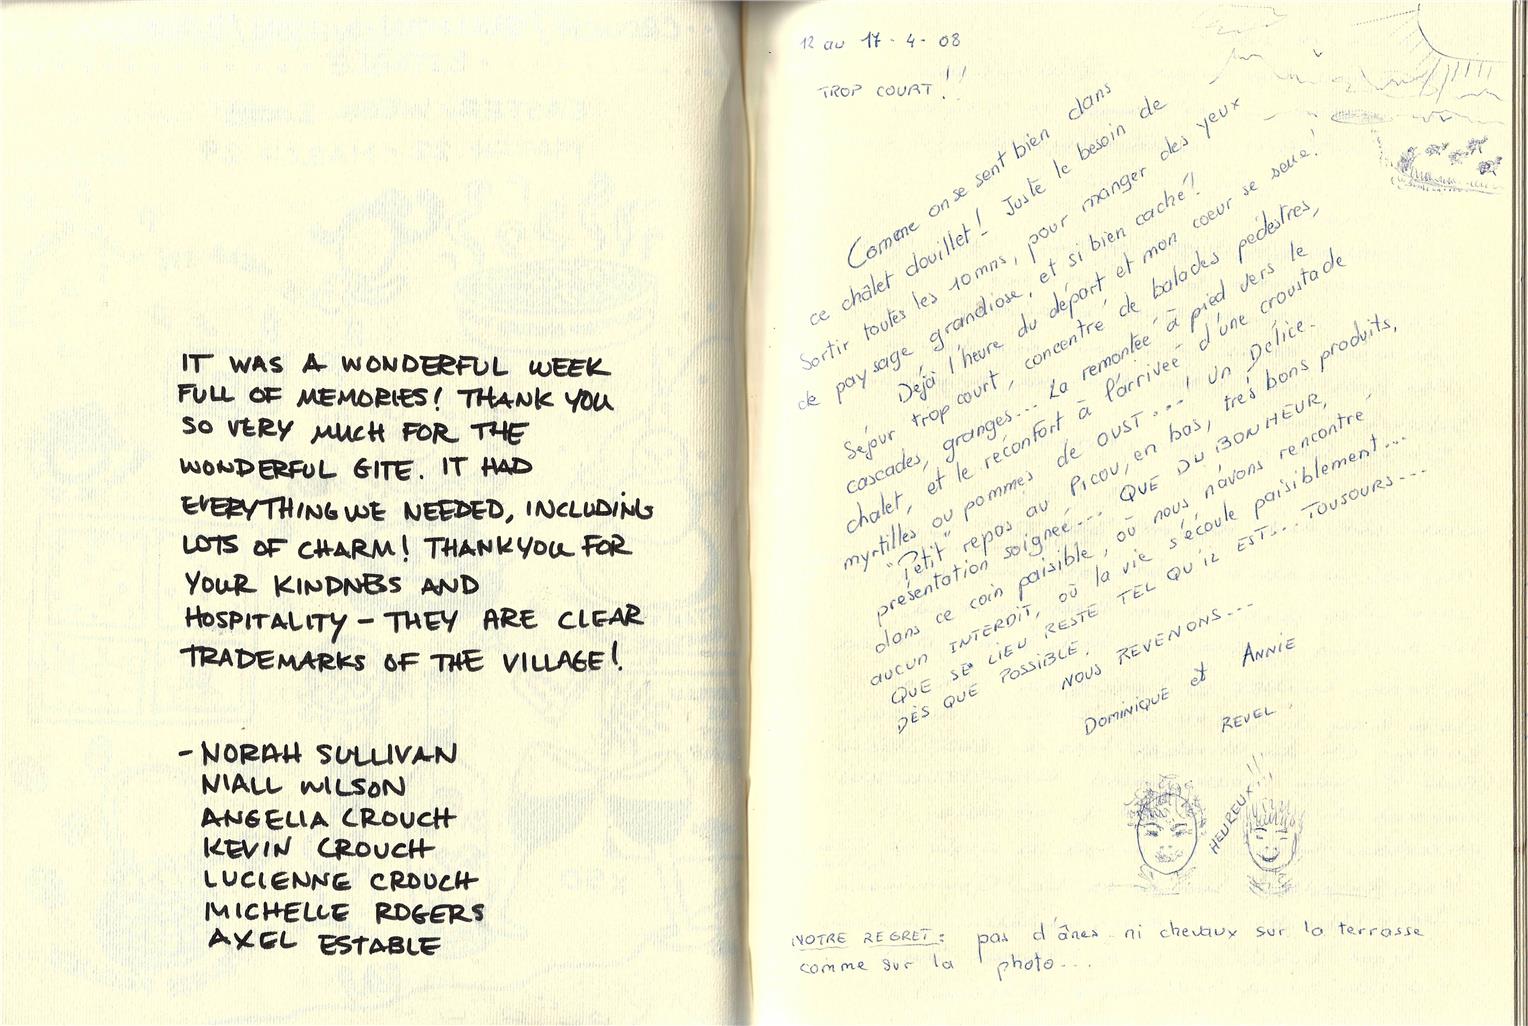 IT WAS A WONDERFUL WEEK
FULL OF MEMORIES! THANK YOU
SO VERY MUCH FOR THE
WONDERFUL GITE. IT HAD
EVERYTHING WE NEEDED, INCLUDING
LOTS OF CHARM! THANK YOU FOR
YOUR KINDNESS AND
HOSPITALITY – THEY ARE CLEAR
TRADEMARKS OF THE VILLAGE!
– NORAH SULLIVAN
NIALL WILSON
ANGELIA CROUCH
KEVIN CROUCH
LUCIENNE CROUCH
MICHELLE ROGERS
AXEL ESTABLE
12 au 17 - 4 - 08
TROP COURT!!!
Comme on se sent bien dans
ce châlet douillet! Juste le besoin de
Sortir toutes les 10 mns, pour manger des yeux
de paysage grandiose, et si bien caché!
Déjà l'heure du départ et mon coeur se serre!
Séjour trop court, concentré de balades pédestres,
cascades, granges... La remontée à pied vers le
chalet, et le réconfort à l'arrivée d'une croustade
myrtilles ou pommes de OUST...! Un Délice.
"Petit" repas au Picou, en bas, très bons produits,
présentation soignée... QUE DU BONHEUR,
dans ce coin paisible, où nous n'avons rencontré
aucun INTERDIT, où la vie s'écoule paisiblement...
QUE SE LIEU RESTE TEL QU'IL EST... TOUJOURS...
DÈS QUE POSSIBLE.
NOUS REVENONS...
DOMINIQUE et ANNIE
REVEL.
HEUREUX!!!
NOTRE REGRET: pas d'ânes ni chevaux sur la terrasse
comme sur la photo...